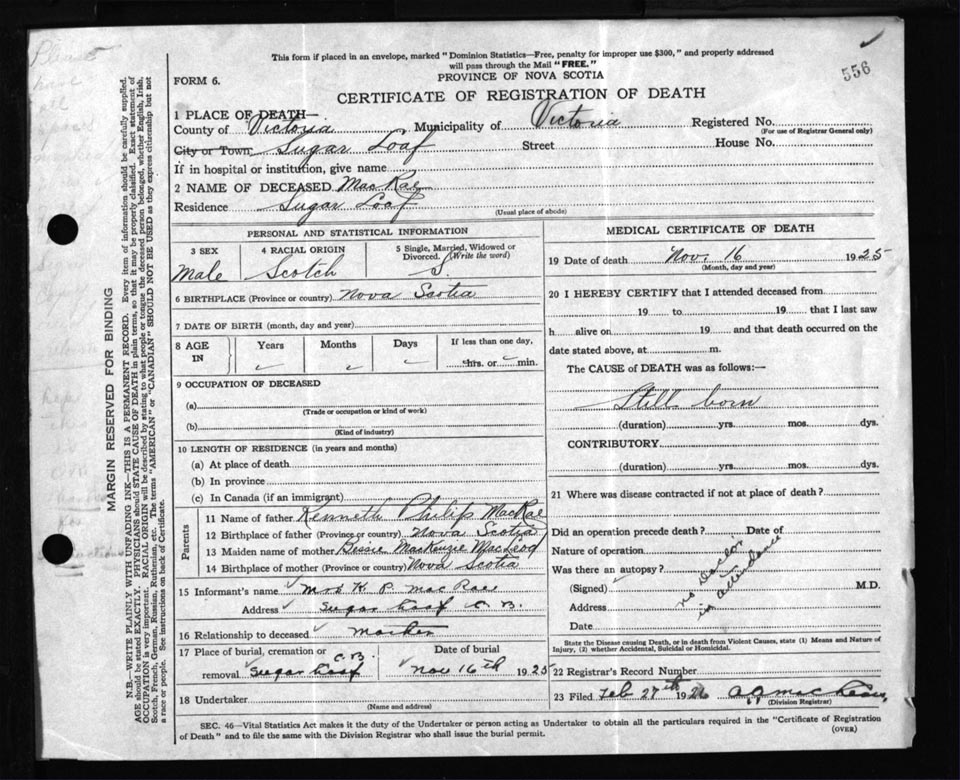 This form if placed in an envelope, marked "Dominion Statistics—Free, penalty for improper use $300," and properly addressed
will pass through the Mail "FREE."
PROVINCE OF NOVA SCOTIA
556
FORM 6.
CERTIFICATE OF REGISTRATION OF DEATH
1 PLACE OF DEATH—
County of Victoria Municipality of Victoria Registered No.
(For use of Registrar General only)
City or Town Sugar Loaf Street House No.
If in hospital or institution, give name
2 NAME OF DECEASED MacRae
Residence Sugar Loaf
(Usual place of abode)
PERSONAL AND STATISTICAL INFORMATION
3 SEX 4 RACIAL ORIGIN 5 Single, Married, Widowed or
Divorced. (Write the word)
Male Scotch S.
6 BIRTHPLACE (Province or country) Nova Scotia
7 DATE OF BIRTH (month, day and year)
8 AGE IN Years Months Days If less than one day,
hrs. or min.
9 OCCUPATION OF DECEASED
(a)
(Trade or occupation or kind of work)
(b)
(Kind of industry)
10 LENGTH OF RESIDENCE (in years and months)
(a) At place of death
(b) In province
(c) In Canada (if an immigrant)
Parents
11 Name of father Kenneth Philip MacRae
12 Birthplace of father (Province or country) Nova Scotia
13 Maiden name of mother Bessie MacKenzie MacLeod
14 Birthplace of mother (Province or country) Nova Scotia
15 Informant's name Mrs K P Mac Rae
Address Sugar Loaf C. B.
16 Relationship to deceased Mother
17 Place of burial, cremation or Date of burial
removal Sugar Loaf C. B. Nov 16th 1925
18 Undertaker
(Name and address)
MEDICAL CERTIFICATE OF DEATH
19 Date of death Nov. 16 1925
(Month, day and year)
20 I HEREBY CERTIFY that I attended deceased from
19 to 19 that I last saw
h alive on 19 and that death occurred on the
date stated above, at m.
The CAUSE of DEATH was as follows:—
Still born
(duration) yrs. mos. dys.
CONTRIBUTORY
(duration) yrs. mos. dys.
21 Where was disease contracted if not at place of death?
Did an operation precede death? Date of
Nature of operation
Was there an autopsy?
(Signed) M.D.
Address
Date
no Doctor
in attendance
State the Disease causing Death, or in death from Violent Causes, state (1) Means and Nature of
Injury, (2) whether Accidental, Suicidal or Homicidal.
22 Registrar's Record Number
23 Filed Feb 27th 1926
(Division Registrar)
SEC. 46—Vital Statistics Act makes it the duty of the Undertaker or person acting as Undertaker to obtain all the particulars required in the "Certificate of Registration
of Death" and to file the same with the Division Registrar who shall issue the burial permit.
(OVER)
MARGIN RESERVED FOR BINDING
N.B.—WRITE PLAINLY WITH UNFADING INK—THIS IS A PERMANENT RECORD. Every item of information should be carefully supplied.
AGE should be stated EXACTLY. PHYSICIANS should STATE CAUSE OF DEATH in plain terms, so that it may be properly classified. Exact statement of
OCCUPATION is very important. RACIAL ORIGIN will be described by stating to what people or tongue the deceased person belonged, whether English, Irish,
Scotch, French, German, Russian, Ruthenian, etc. The terms "AMERICAN" or "CANADIAN" SHOULD NOT BE USED as they express citizenship but not
a race or people. See instructions on back of Certificate.